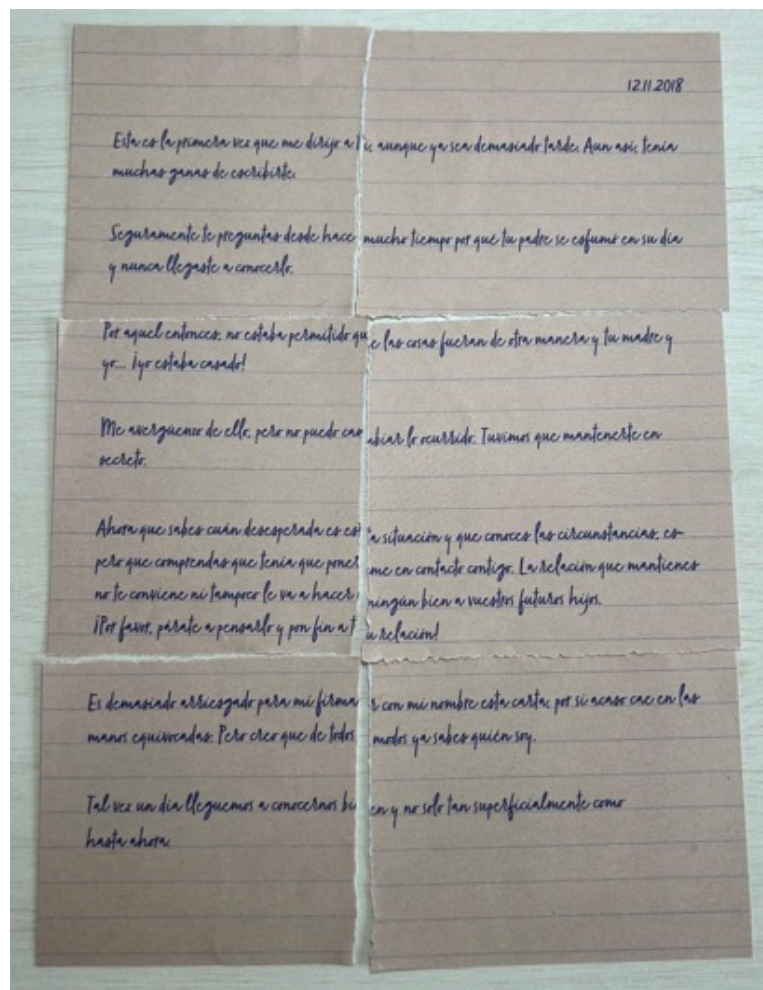 12.11.2018
Esta es la primera vez que me dirijo a ti, aunque ya sea demasiado tarde. Aun así, tenía
muchas ganas de escribirte.
Seguramente te preguntas desde hace mucho tiempo por qué tu padre se esfumó en su día
y nunca llegaste a conocerlo.
Por aquel entonces, no estaba permitido que las cosas fueran de otra manera y tu madre y
yo... ¡yo estaba casado!
Me avergüenzo de ello, pero no puedo cambiar lo ocurrido. Tuvimos que mantenerte en
secreto.
Ahora que sabes cuán desesperada es esta situación y que conoces las circunstancias, es-
pero que comprendas que tenía que ponerme en contacto contigo. La relación que mantienes
no te conviene ni tampoco le va a hacer ningún bien a vuestros futuros hijos.
¡Por favor, párate a pensarlo y pon fin a tu relación!
Es demasiado arriesgado para mí firmar con mi nombre esta carta, por si acaso cae en las
manos equivocadas. Pero creo que de todos modos ya sabes quién soy.
Tal vez un día lleguemos a conocernos bien y no solo tan superficialmente como
hasta ahora.